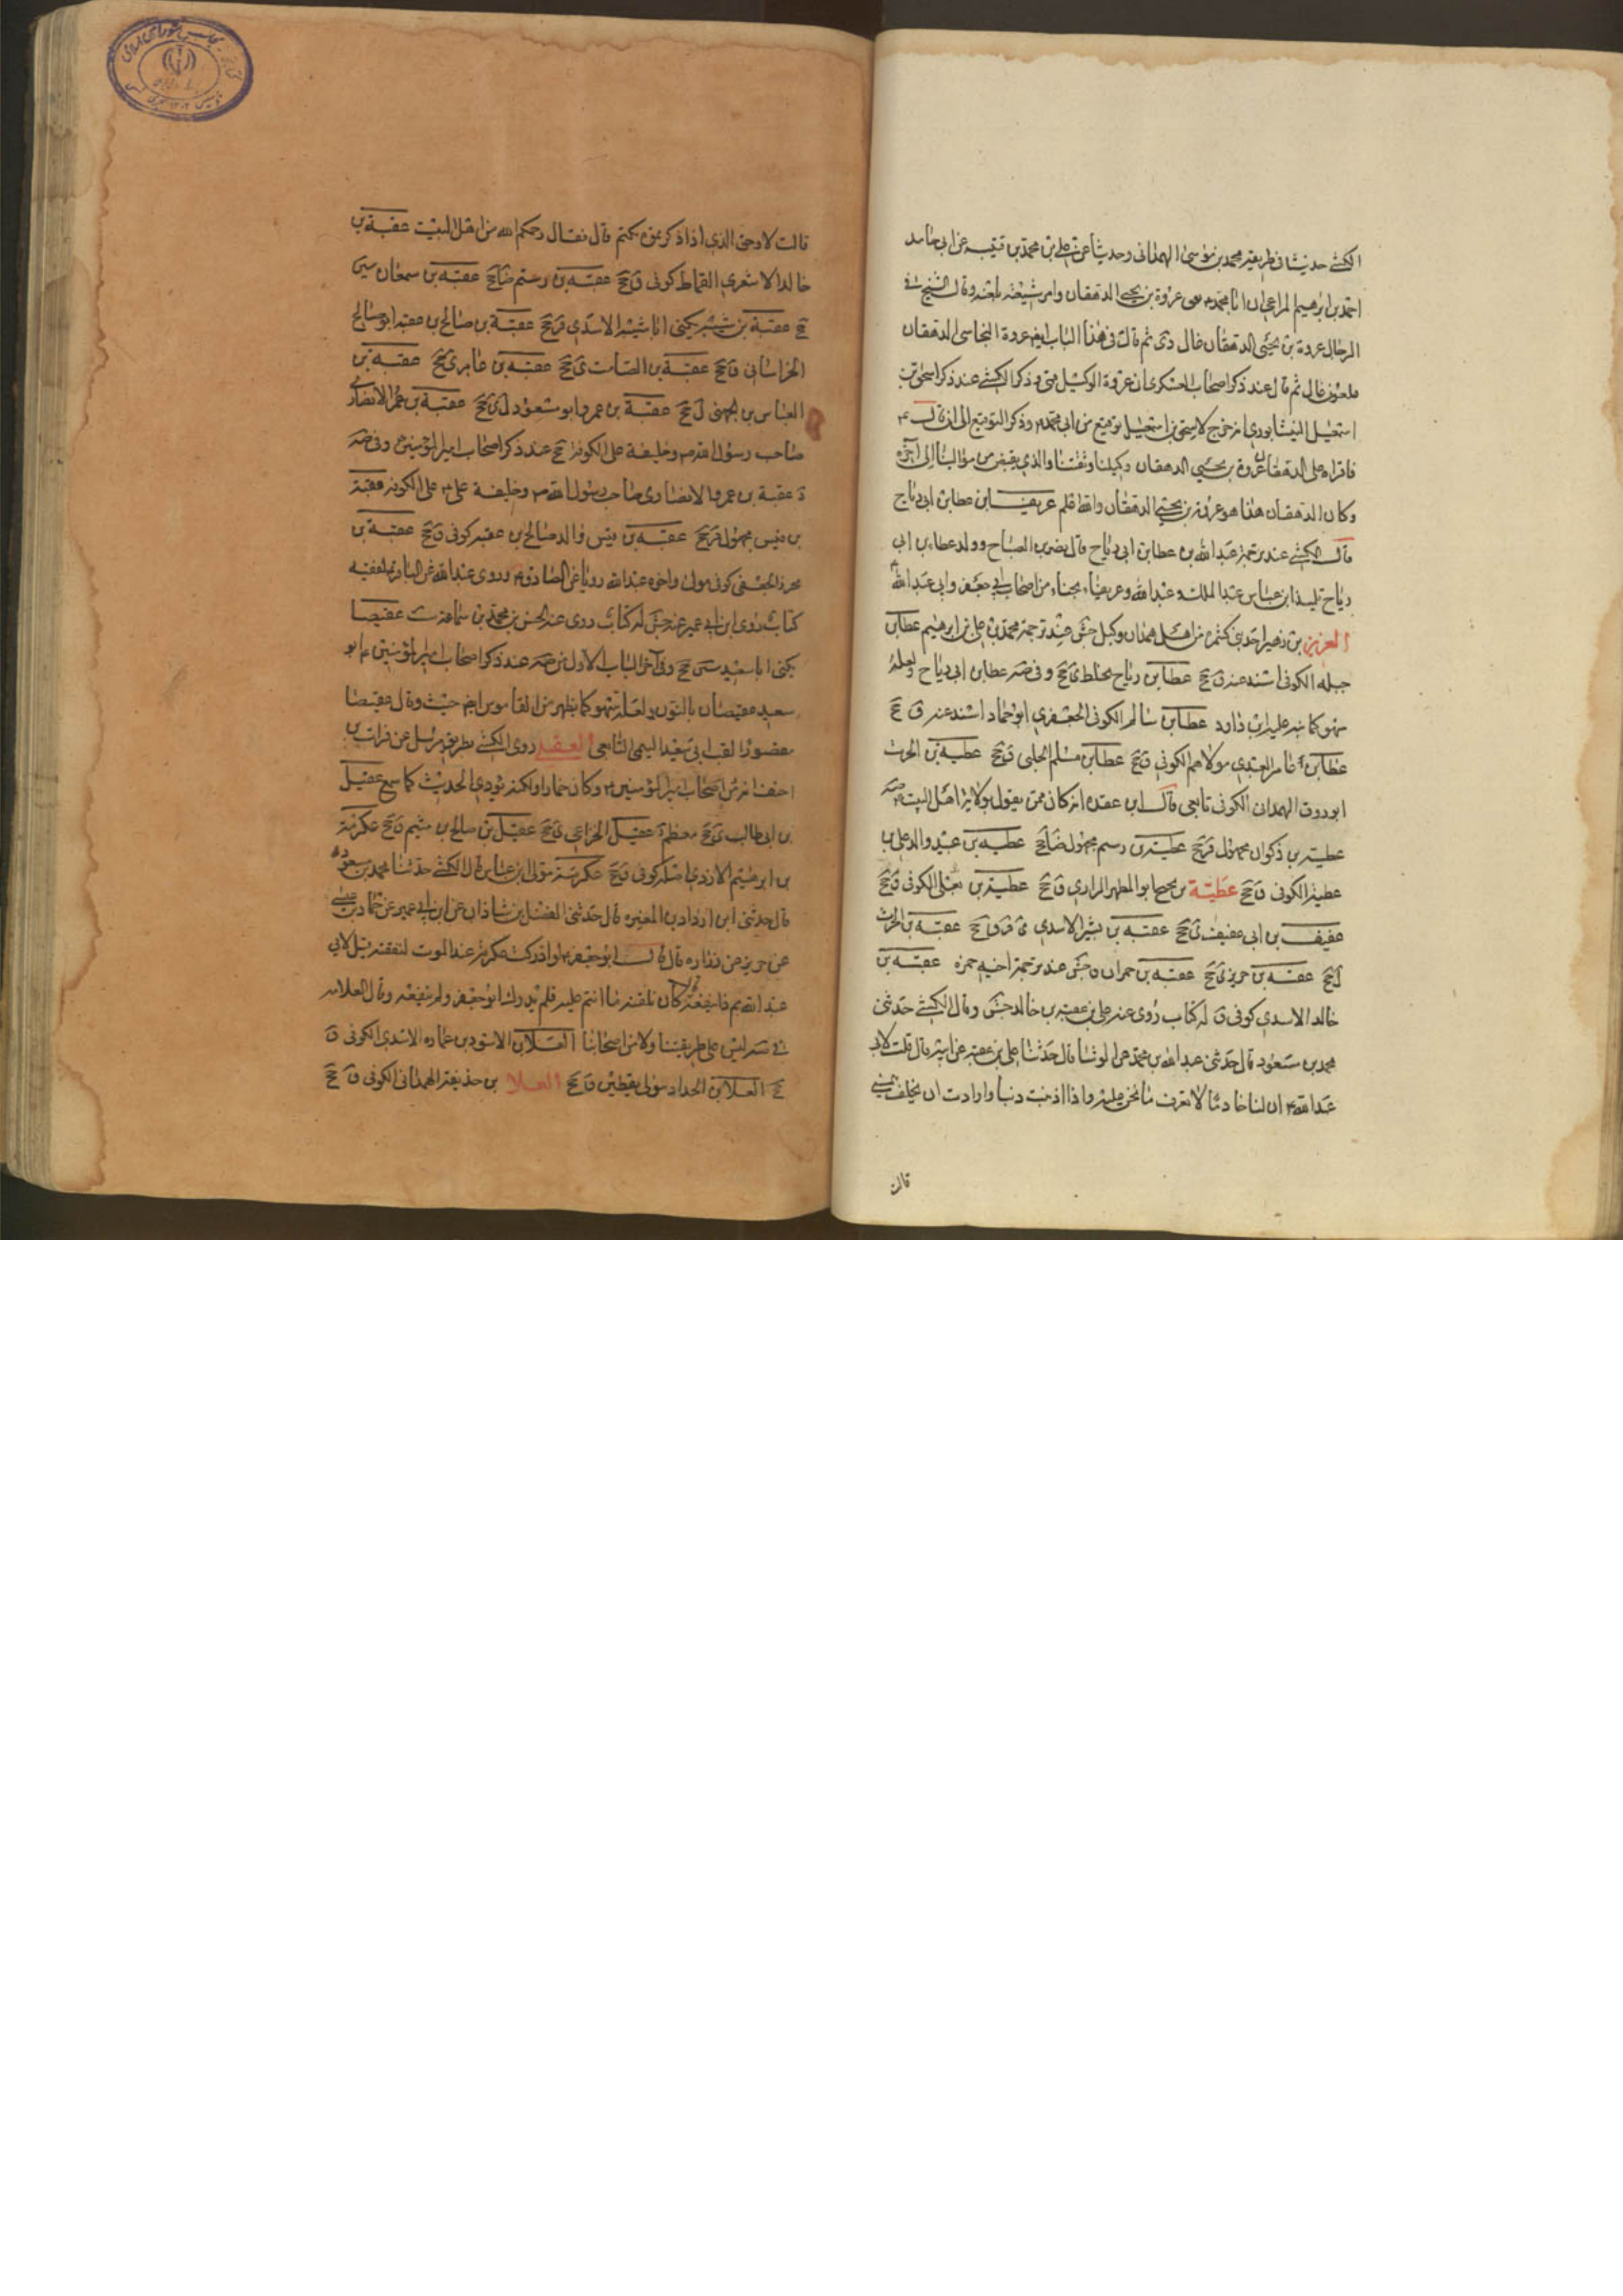 الكشى حديثا فى طريقه محمد بن موسى الهمدانى وحديثا عن على بن محمد بن قتيبه عن ابى حامد
احمد بن ابرهيم المراغى ان ابا محمد لعن عروة بن يحيى الدهقان وامر شيعته بلعنه وقال الشيخ فى
الرجال عروة بن يحيى الدهقان غال دى ثم قال فى هذا الباب ايضا عروة النخاسى الدهقان
ملعون غال ثم قال عند ذكر اصحاب العسكرى ان عروة الوكيل قمى وذكر الكشى عند ذكر اسحق بن
اسمعيل النيشابورى انه خرج لاسحق بن اسمعيل توقيع من ابى محمد وذكر التوقيع الى ان قال
فاقراه على الدهقان عروة بن يحيى الدهقان وكيلنا وثقتنا والذى يقبض من موالينا الى آخره
وكان الدهقان هذا هو عروة بن يحيى الدهقان والله اعلم عريف بن عطا بن ابى رياح
قال الكشى عند ترجمة عبد الله بن عطا بن ابى رياح قال نصر بن الصباح وولد عطاء بن ابى
رياح تلميذ ابن عباس عبد الملك وعبد الله وعريفا نجباء من اصحاب ابى جعفر وابى عبد الله
العزيز بن زهير احد بنى كثمرد من اهل همدان وكيل جش عند ترجمة محمد بن على بن ابرهيم عطا بن
جبله الكوفى اسند عنه ق جخ عطا بن رياح مخلط ى جخ وفى صه عطا بن ابى رياح ولعله
سهو كما نبه عليه ابن داود عطا بن سالم الكوفى الجعفرى ابو حماد اسند عنه ق جخ
عطا بن عامر العبدى مولاهم الكوفى ق جخ عطا بن مسلم الحلبى ق جخ عطيه بن الحرث
ابو روق الهمدانى الكوفى تابعى قال ابن عقده انه كان ممن يقول بولاية اهل البيت صه
عطية بن ذكوان مجهول قر جخ عطية بن رستم مجهول ضا جخ عطيه بن عبيد والد على بن
عطية الكوفى ق جخ عطية بن نجيح ابو المطهر الرازى ق جخ عطية بن يعلى الكوفى ق جخ
عفيف بن ابى عفيف ى جخ عقبه بن بشير الاسدى ين قر ق جخ عقبه بن الحرث
ل جخ عقبه بن حريز ى جخ عقبه بن حمران ق جش عند ترجمة اخيه حمزه عقبه بن
خالد الاسدى كوفى ق له كتاب روى عنه على بن عقبه بن خالد جش وقال الكشى حدثنى
محمد بن مسعود قال حدثنى عبد الله بن محمد عن الوشا قال حدثنا على بن عقبه عن ابيه قال قلت لابى
عبد الله ان لنا خادما لا تعرف ما نحن عليه واذا اذنبت ذنبا وارادت ان تحلف بيمين
قالت
قالت لا وحق الذى اذا ذكرتموه بكيتم قال فقال رحمكم الله من اهل البيت عقبة بن
خالد الاشعرى القماط كوفى ق جخ عقبة بن رستم ضا جخ عقبه بن سمعان سين
جخ عقبة بن شيبه يكنى ابا شيبه الاسدى قر جخ عقبة بن صالح بن عقبه ابو صالح
الخراسانى ق جخ عقبة بن الصامت ى جخ عقبه بن عامر ى جخ عقبه بن
العباس بن الجهنى ل جخ عقبة بن عمرو ابو مسعود ل ى جخ عقبة بن عمرو الانصارى
صاحب رسول الله وخليفة على الكوفة جخ عند ذكر اصحاب امير المؤمنين وفى صه
ة عقبة بن عمرو الانصارى صاحب رسول الله وخليفة على على الكوفه عقبة
بن قيس مجهول قر جخ عقبه بن قيس والد صالح بن عقبه كوفى ق جخ عقبة بن
محرز الجعفى كوفى مولى واخوه عبد الله رويا عن الصادق وروى عبد الله عن الباقر لعقبه
كتاب روى ابن ابى عمير عنه جش له كتاب روى عنه الحسن بن محمد بن سماعة ست عقيصا
يكنى ابا سعيد سين جخ وفى آخر الباب الاول من صه عند ذكر اصحاب امير المؤمنين ابو
سعيد عقيصان بالنون ولعله سهو كما يظهر من القاموس ايضا حيث قال عقيصا
مقصورا لقب ابى سعيد التيمى التابعى العقد روى الكشى بطريق مرسل عن فرات بن
احنف انه من اصحاب امير المؤمنين وكان خمارا ولكنه يؤدى الحديث كما سمع عقيل
بن ابى طالب ى جخ معظم ة عقيل الخزاعى ى جخ عقيل بن صالح بن ميثم ق جخ عكرمة
بن ابرهيم الازدى اصله كوفى ق جخ عكرمة مولى ابن عباس قال الكشى حدثنا محمد بن مسعود
قال حدثنى ابن ازداد بن المغيره قال حدثنى الفضل بن شاذان عن ابن ابى عمير عن حماد بن عيسى
عن حريز عن زراره قال قال ابو جعفر لو ادركت عكرمة عند الموت لنفعته قيل لابى
عبد الله بم ذا ينفعه قال كان يلقنه ما انتم عليه فلم يدركه ابو جعفر ولم ينفعه وقال العلامه
فى صه ليس على طريقتنا ولا من اصحابنا العلا بن الاسود بن عماره الاسدى الكوفى ق
جخ العلا بن الحداد مولى يقطين ق جخ العلا بن حذيفة الهمدانى الكوفى ق جخ